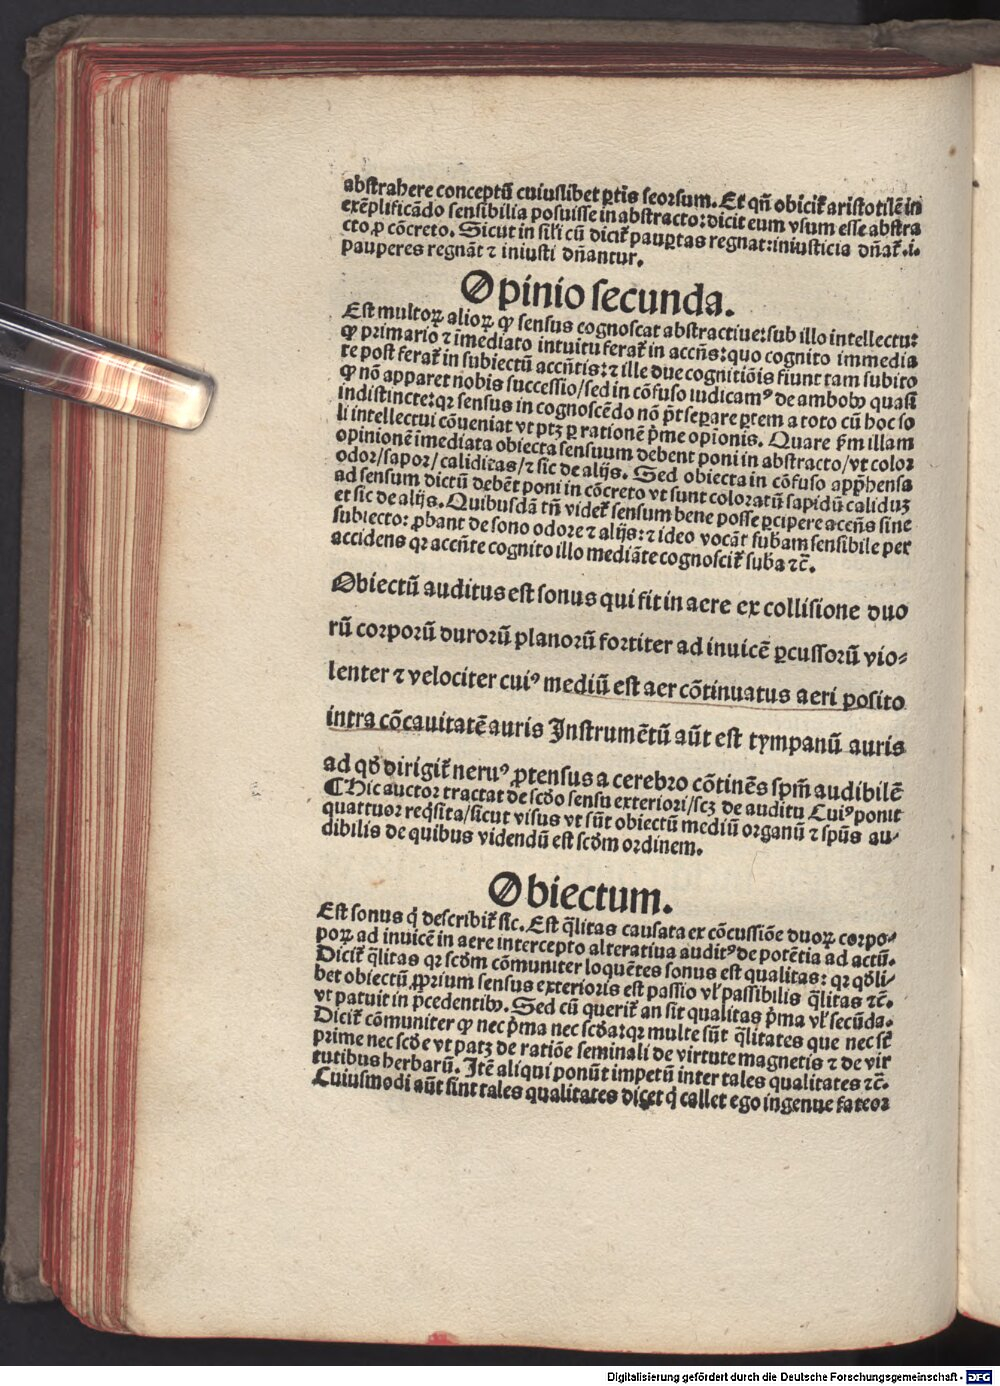 abstrahere conceptū cuiuslibet ꝑtis seorsum. Et qñ obicit᷑ aristotilē in
exēplificādo sensibilia posuisse in abstracto: dicit eum vsum esse abstra
cto ꝓ cōcreto. Sicut in sil'i cū dicit᷑ pauꝑtas regnat: iniusticia dñat᷑ .i.
pauperes regnāt ⁊ iniusti dñantur.
Opinio secunda.
Est multoꝝ alioꝝ ꝙ sensus cognoscat abstractiue: sub illo intellectu:
ꝙ primario ⁊ īmediato intuitu ferat᷑ in accñs: quo cognito immedia
te post ferat᷑ in subiectū accñtis: ⁊ ille due cognitiōis fiunt tam subito
ꝙ nō apparet nobis successio/ sed in cōfuso iudicamꝰ de ambobꝫ quasi
indistincte: qꝛ sensus in cognoscēdo nō p̄t seꝑare ꝑtem a toto cū hoc so
li intellectui cōueniat vt ptꝫ ꝑ rationē p̄me opīonis. Quare ẜm illam
opinionē īmediata obiecta sensuum debent poni in abstracto/ vt color
odor/ sapor/ caliditas/ ⁊ sic de alijs. Sed obiecta in cōfuso app̄hensa
ad sensum dictū debēt poni in cōcreto vt sunt coloratū sapidū caliduꝫ
et sic de alijs. Quibusdā tñ videt᷑ sensum bene posse ꝑcipere accēns sine
subiecto: ꝓbant de sono odore ⁊ alijs: ⁊ ideo vocāt sub̄am sensibile per
accidens qꝛ accñte cognito illo mediāte cognoscit᷑ sub̄a ⁊c̄.
Obiectū auditus est sonus qui fit in aere ex collisione duo
rū corporū durorū planorū fortiter ad inuicē ꝑcussorū vio⸗
lenter ⁊ velociter cuiꝰ mediū est aer cōtinuatus aeri posito
intra cōcauitatē auris Instrumētū aūt est tympanū auris
ad qđ dirigit᷑ neruꝰ ꝓtensus a cerebro cōtinēs sp̄m audibilē
¶ Hic auctor tractat de scđo sensu exteriori/ scꝫ de auditu Cuiꝰ ponit
quattuor reqͥsita/ sicut visus vt sūt obiectū mediū organū ⁊ sp̄us au⸗
dibilis de quibus videndū est scđm ordinem.
Obiectum.
Est sonus q̇ describit᷑ sic. Est q̄litas causata ex cōcussiōe duoꝝ corpo⸗
poꝝ ad inuicē in aere intercepto alteratiua auditꝰ de potētia ad actū.
Dicit᷑ q̄litas qꝛ scđm cōmuniter loquētes sonus est qualitas: qꝛ qđli⸗
bet obiectū ꝓprium sensus exterioris est passio vl' passibilis q̄litas ⁊c̄.
vt patuit in p̄cedentibꝫ. Sed cū querit᷑ an sit qualitas p̄ma vl' secūda.
Dicit᷑ cōmuniter ꝙ nec p̄ma nec scđa: qꝛ multe sūt q̄litates que nec st̄
prime nec scđe vt patꝫ de ratiōe seminali de virtute magnetis ⁊ de vir
tutibus herbarū. Itē aliqui ponūt impetū inter tales qualitates ⁊c̄.
Cuiusmodi aūt sint tales qualitates dicet q̇ callet ego ingenue fateor
Digitalisierung gefördert durch die Deutsche Forschungsgemeinschaft - DFG